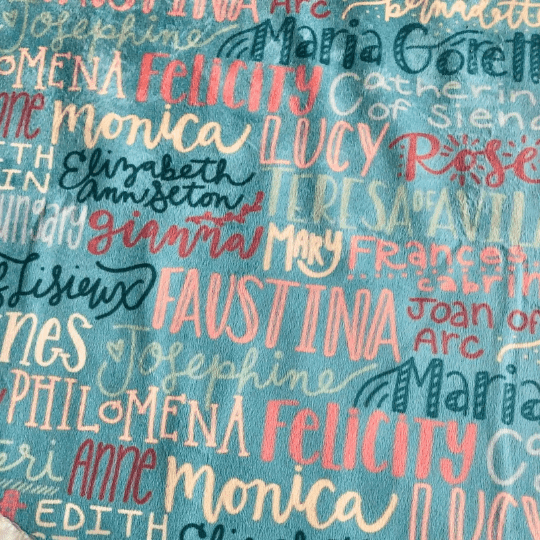 FAUSTINA Arc bernadette
Josephine Maria Gorett
OMENA FELICITY Catherin
of Siena
nne Monica LUCY Rose
ITH Elizabeth
IN Ann Seton TERESA OF AVIL
Hungary gianna MARY FRances
cabrin
of Lisieux FAUSTINA Joan of
Arc
nes Josephine Maria
PHILOMENA FELICITY Ca
eri Anne Monica LUCY
EDITH
Elizabeth